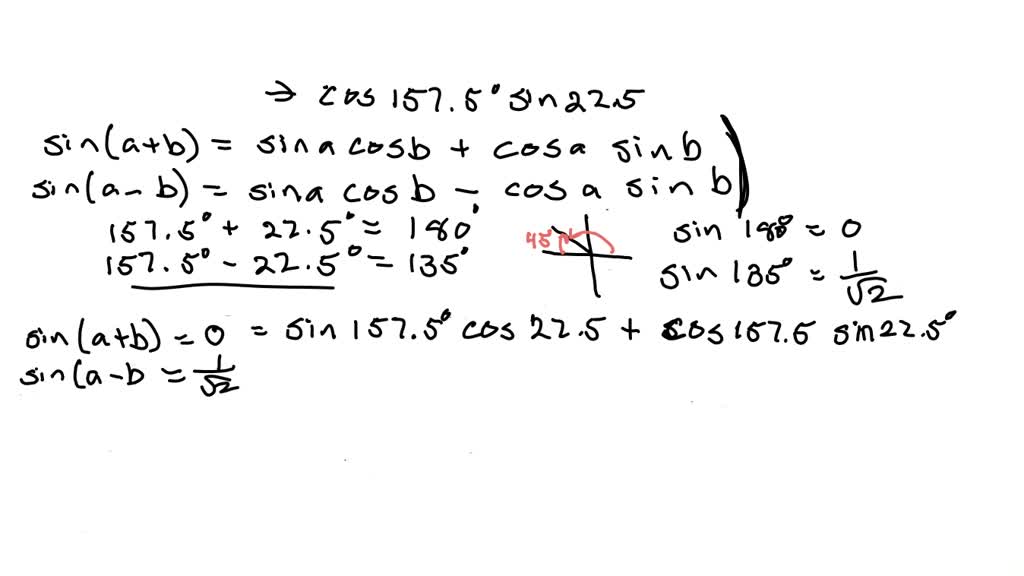 → cos 157.5° sin 22.5
sin(a+b) = sin a cos b + cos a sin b
sin(a-b) = sin a cos b - cos a sin b)
157.5° + 22.5° = 180°
157.5° - 22.5° = 135°
45°
sin 180° = 0
sin 135° = 1/√2
sin(a+b) = 0 = sin 157.5° cos 22.5 + cos 157.5 sin 22.5°
sin(a-b = 1/√2